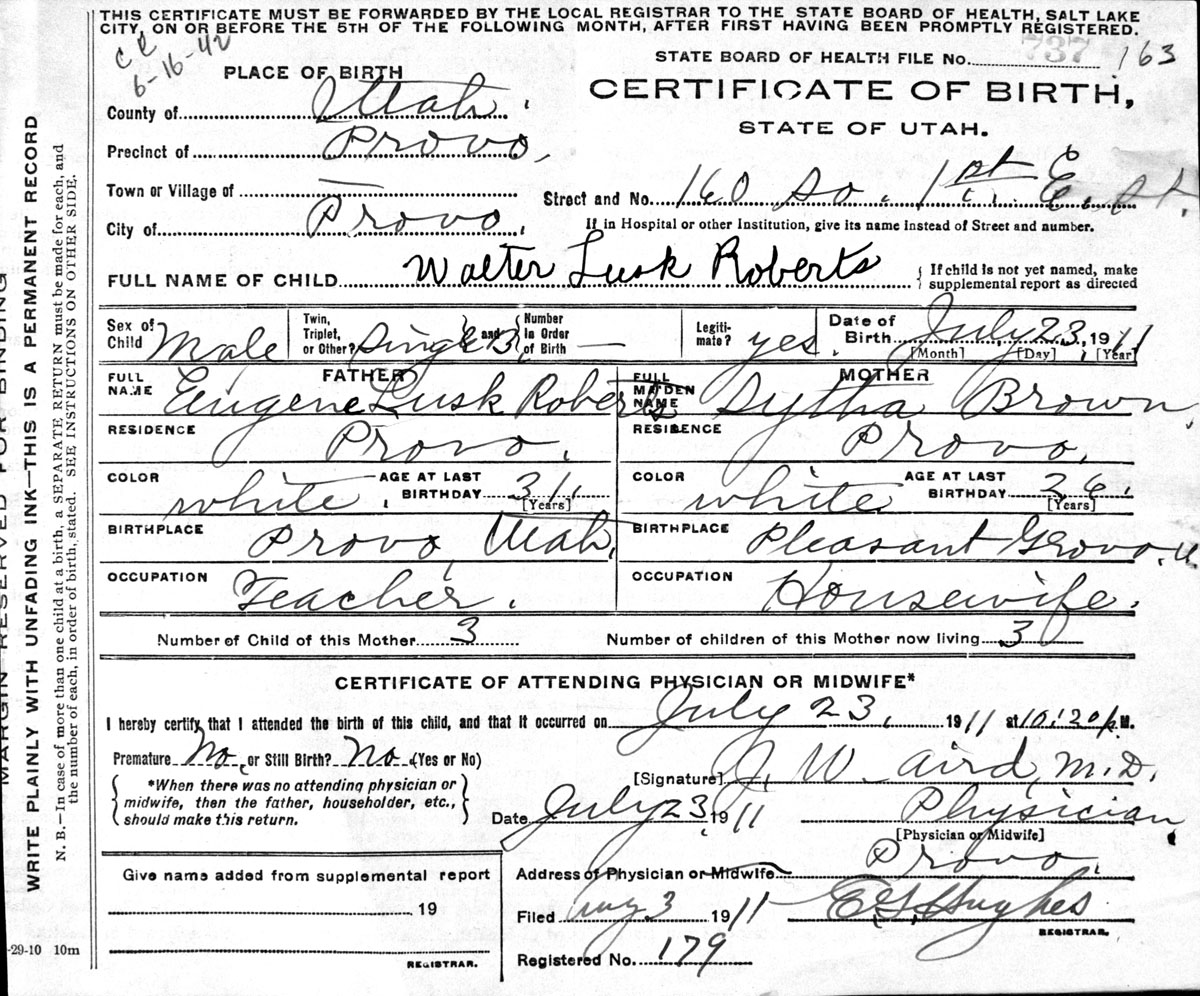 THIS CERTIFICATE MUST BE FORWARDED BY THE LOCAL REGISTRAR TO THE STATE BOARD OF HEALTH, SALT LAKE
CITY, ON OR BEFORE THE 5TH OF THE FOLLOWING MONTH, AFTER FIRST HAVING BEEN PROMPTLY REGISTERED.
CR
6-16-42
STATE BOARD OF HEALTH FILE No. 737 163
PLACE OF BIRTH
CERTIFICATE OF BIRTH,
STATE OF UTAH.
County of Utah.
Precinct of Provo,
Town or Village of —
Street and No. 160 So. 1st E. St.
City of Provo.
If in Hospital or other Institution, give its name instead of Street and number.
FULL NAME OF CHILD Walter Lusk Roberts
{ If child is not yet named, make
supplemental report as directed
Sex of Child Male
Twin, Triplet, or Other? Single and 3 { Number in Order of Birth —
Legitimate? yes.
Date of Birth July 23, 1911
[Month] [Day] [Year]
FATHER
FULL NAME Eugene Lusk Roberts
MOTHER
FULL MAIDEN NAME Sytha Brown,
RESIDENCE Provo.
RESIDENCE Provo.
COLOR white. AGE AT LAST BIRTHDAY 31. [Years]
COLOR white AGE AT LAST BIRTHDAY 26. [Years]
BIRTHPLACE Provo, Utah.
BIRTHPLACE Pleasant Grove, U.
OCCUPATION Teacher.
OCCUPATION Housewife.
Number of Child of this Mother 3
Number of children of this Mother now living 3
CERTIFICATE OF ATTENDING PHYSICIAN OR MIDWIFE*
I hereby certify that I attended the birth of this child, and that it occurred on July 23, 1911 at 10:20 P.M.
Premature No, or Still Birth? No. (Yes or No)
[Signature] J. W. Aird, M.D.
{ *When there was no attending physician or
midwife, then the father, householder, etc.,
should make this return. }
Date July 23, 1911
Physician
[Physician or Midwife]
Give name added from supplemental report
19
REGISTRAR.
Address of Physician or Midwife Provo.
Filed Aug 3 1911 E G Hughes
REGISTRAR.
Registered No. 179
-29-10 10m
MARGIN RESERVED FOR BINDING
WRITE PLAINLY WITH UNFADING INK—THIS IS A PERMANENT RECORD
N. B.—In case of more than one child at a birth, a SEPARATE RETURN must be made for each, and
the number of each, in order of birth, stated. SEE INSTRUCTIONS ON OTHER SIDE.